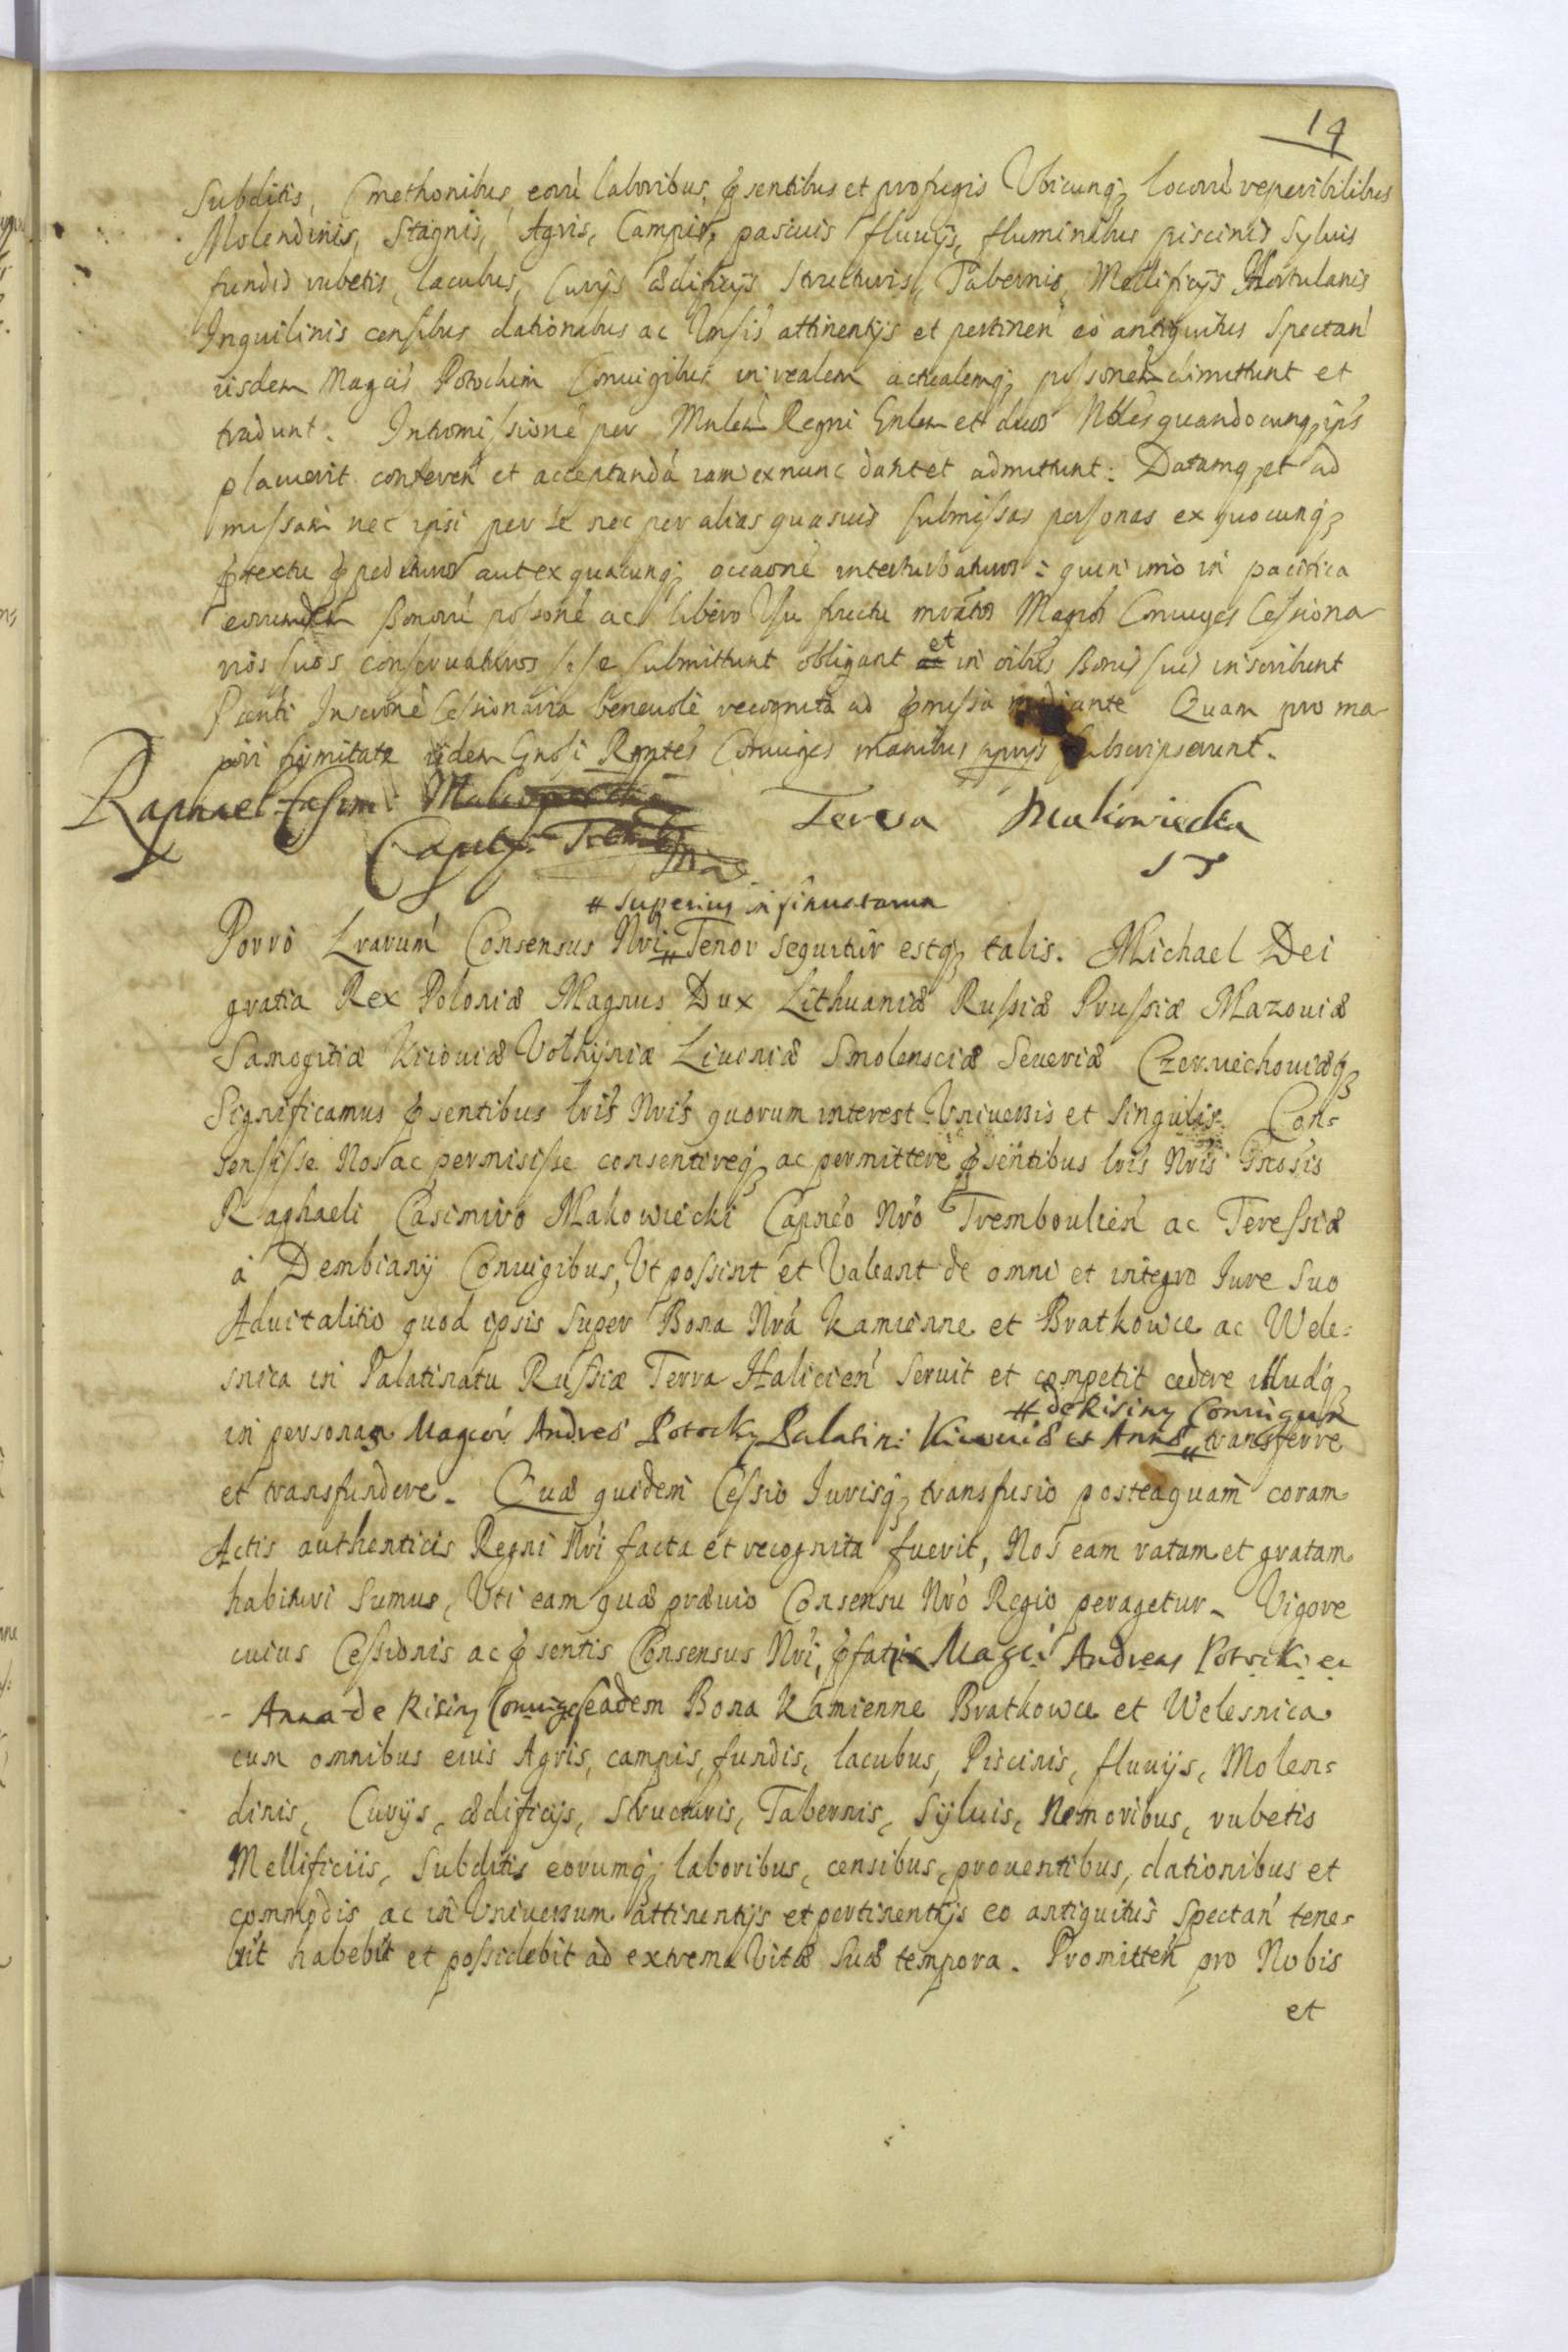 14
Subditis, Cmethonibus, eorũ laboribus, p̱sentibus et profugis Vbicunq₃ locorũ reperibilibus
Molendinis, Stagnis, Agris, Campis, pascuis fluuijs, fluminibus piscinis Syluis
fundis rubetis, lacubus, Curijs ædificijs structuris, Tabernis, Mellificijs Hortulanis
Inquilinis censibus dationibus ac Vnsis attinentijs et pertinen̄ eò antiquitus Spectan̄
iisdem Magcis Potockim Coniugibus in realem actualemq₃ possonem dimittunt et
tradunt. Intromissionẽ per Mnlem Regni Gnlem et duos Nobles quandocunq₃ ips̃
placuerit conferen̄ et acceptandã iam ex nunc dant et admittunt. Datamq₃ et ad
missam nec ipsi per se nec per alias quasuis submissas personas ex quocunq₃
p̱textu p̱pedituros aut ex quacunq₃ occaone interturbaturos: quin imò in pacifica
eorundem Bonorũ possone ac libero Vsu fructu mratos Magcos Coniuges Cessiona
rios suos conseruaturos sese submittunt obligant et in oibus Bonis suis inscribunt
Pnti Inscrone Cessionaria beneuolè recognita ad p̱missa mediante Quam pro ma
iori firmitate iidem Gnosi Rgntes Coniuges manibus pprijs subscripserunt.
Raphael Casim: Makowiecki Teresa Makowiecka
Capts: Tremb
mp
# superius insinuatarum
Porrò Lrarum Consensus Nri # Tenor sequitur estq₃ talis. Michael Dei
gratia Rex Poloniæ Magnus Dux Lithuaniæ Russiæ Prussiæ Mazouiæ
Samogitiæ Kiiouiæ Volhijniæ Liuoniæ Smolensciæ Seueriæ Czerniechouiæq₃
Significamus p̱sentibus lris Nris quorum interest Vniuersis et singulis. Con-
sensisse Nos ac permisisse consentireq₃ ac permittere p̱sentibus lris Nris Gnosis
Raphaeli Casimiro Makowiecki Capneo Nro Tremboulien̄ ac Teressiæ
à Dembiany Coniugibus, Vt possint et Valeant de omni et integro Iure suo
Aduitalitio quod ipsis super Bona Nrá Kamienne et Bratkowce ac Wele-
snica in Palatinatu Russiæ Terra Halicien̄ seruit et competit cedere illudq₃
# de Risiny Coniugum
in personas Magcor̄ Andreæ Potocky Palatini Kiiouiæ et Annæ # transferre
et transfundere. Quæ quidem Cessio Iurisq₃ transfusio posteaquam coram
Actis authenticis Regni Nri facta et recognita fuerit, Nos eam ratam et gratam
habituri sumus, Vti eam quæ præuio Consensu Nro Regio peragetur. Vigore
cuius Cessionis ac p̱sentis Consensus Nri, p̱fati Magci Andreas Potocki et
Anna de Risiny Coniuges eadem Bona Kamienne Bratkowce et Welesnica
cum omnibus eius Agris, campis, fundis, lacubus, Piscinis, fluuijs, Molen-
dinis, Curijs, ædificijs, structuris, Tabernis, Syluis, Nemoribus, rubetis
Mellificiis, Subditis eorumq₃ laboribus, censibus, prouentibus, dationibus et
commodis ac in Vniuersum attinentijs et pertinentijs eo antiquitus spectan̄ tene-
bit habebit et possidebit ad extrema Vitæ suæ tempora. Promitten̄ pro Nobis
et